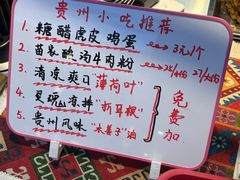 贵州小吃推荐
1. 糖醋虎皮鸡蛋 3元/个
2. 苗家酸汤牛肉粉 25/份 27/份
3. 清凉爽口"薄荷叶"
4. 灵魂香拌"折耳根"
5. 贵州风味"木姜子"油
免费加